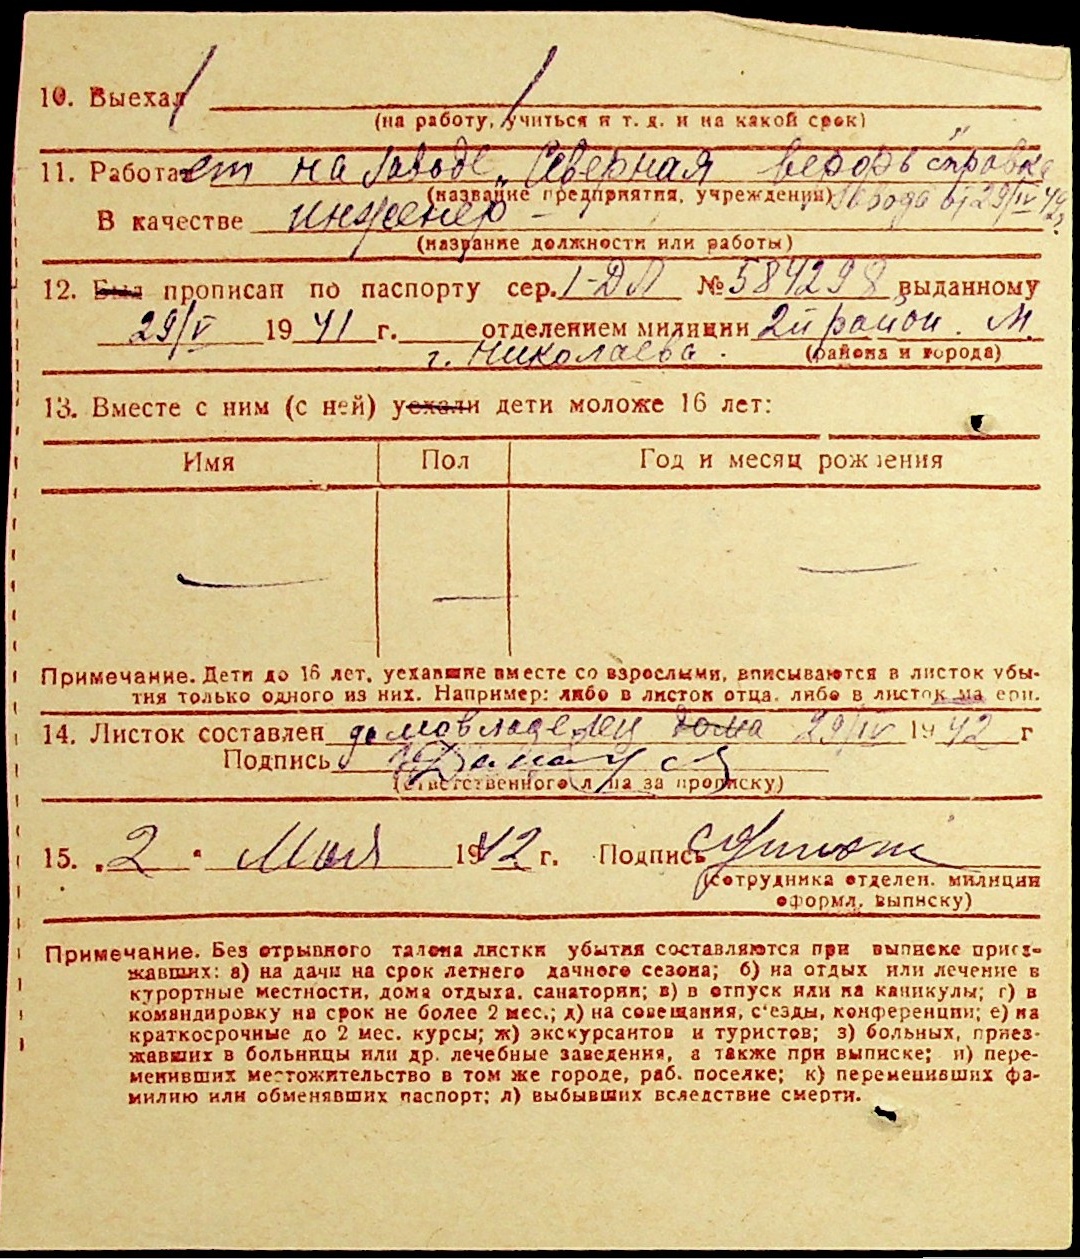 10. Выехал
(на работу, учиться и т. д. и на какой срок)
11. Работает на заводе „Северная верфь" справка
(название предприятия, учреждения) завода от 29/IV 42 г.
В качестве инженер -
(название должности или работы)
12. Был прописан по паспорту сер. I-ДЛ № 584298 выданному
29/V 1941 г. отделением милиции 2й район. М.
г. Николаева. (района и города)
13. Вместе с ним (с ней) уехали дети моложе 16 лет:
Имя Пол Год и месяц рождения
— — —
Примечание. Дети до 16 лет, уехавшие вместе со взрослыми, вписываются в листок убы-
тия только одного из них. Например: либо в листок отца, либо в листок матери.
14. Листок составлен домовладелец дома 29/IV 1942 г
Подпись
(ответственного лица за прописку)
15. „2" Мая 1942 г. Подпись
(сотрудника отделен. милиции
оформл. выписку)
Примечание. Без отрывного талона листки убытия составляются при выписке приез-
жавших: а) на дачи на срок летнего дачного сезона; б) на отдых или лечение в
курортные местности, дома отдыха, санатории; в) в отпуск или на каникулы; г) в
командировку на срок не более 2 мес.; д) на совещания, с'езды, конференции; е) на
краткосрочные до 2 мес. курсы; ж) экскурсантов и туристов; з) больных, приез-
жавших в больницы или др. лечебные заведения, а также при выписке; и) пере-
менивших местожительство в том же городе, раб. поселке; к) переменивших фа-
милию или обменявших паспорт; л) выбывших вследствие смерти.